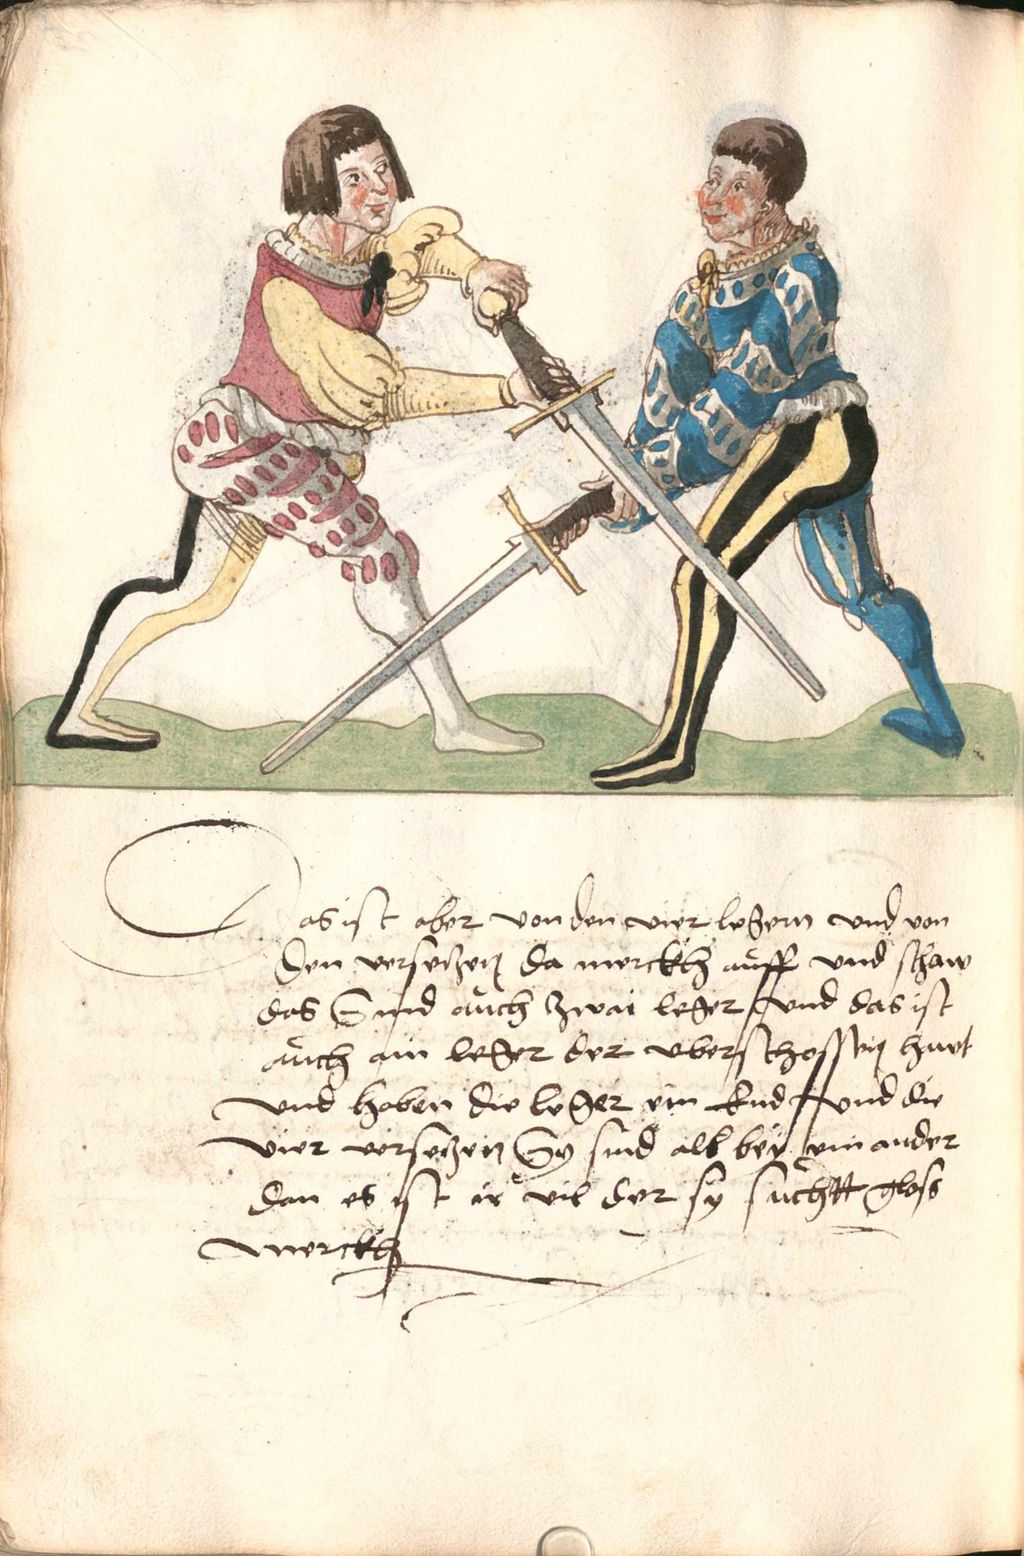 Das ist aber von den vier legern vnd von
den versetzen da merckh auff vnd schaw
das Sind auch zwai leger vnd das ist
auch ain leger der vberschossen hutt
vnd haben die leger ein End vnd die
vier versetzen Sy sind all bey ein ander
dan es ist ir vil der sy suchtt gloss
merckh